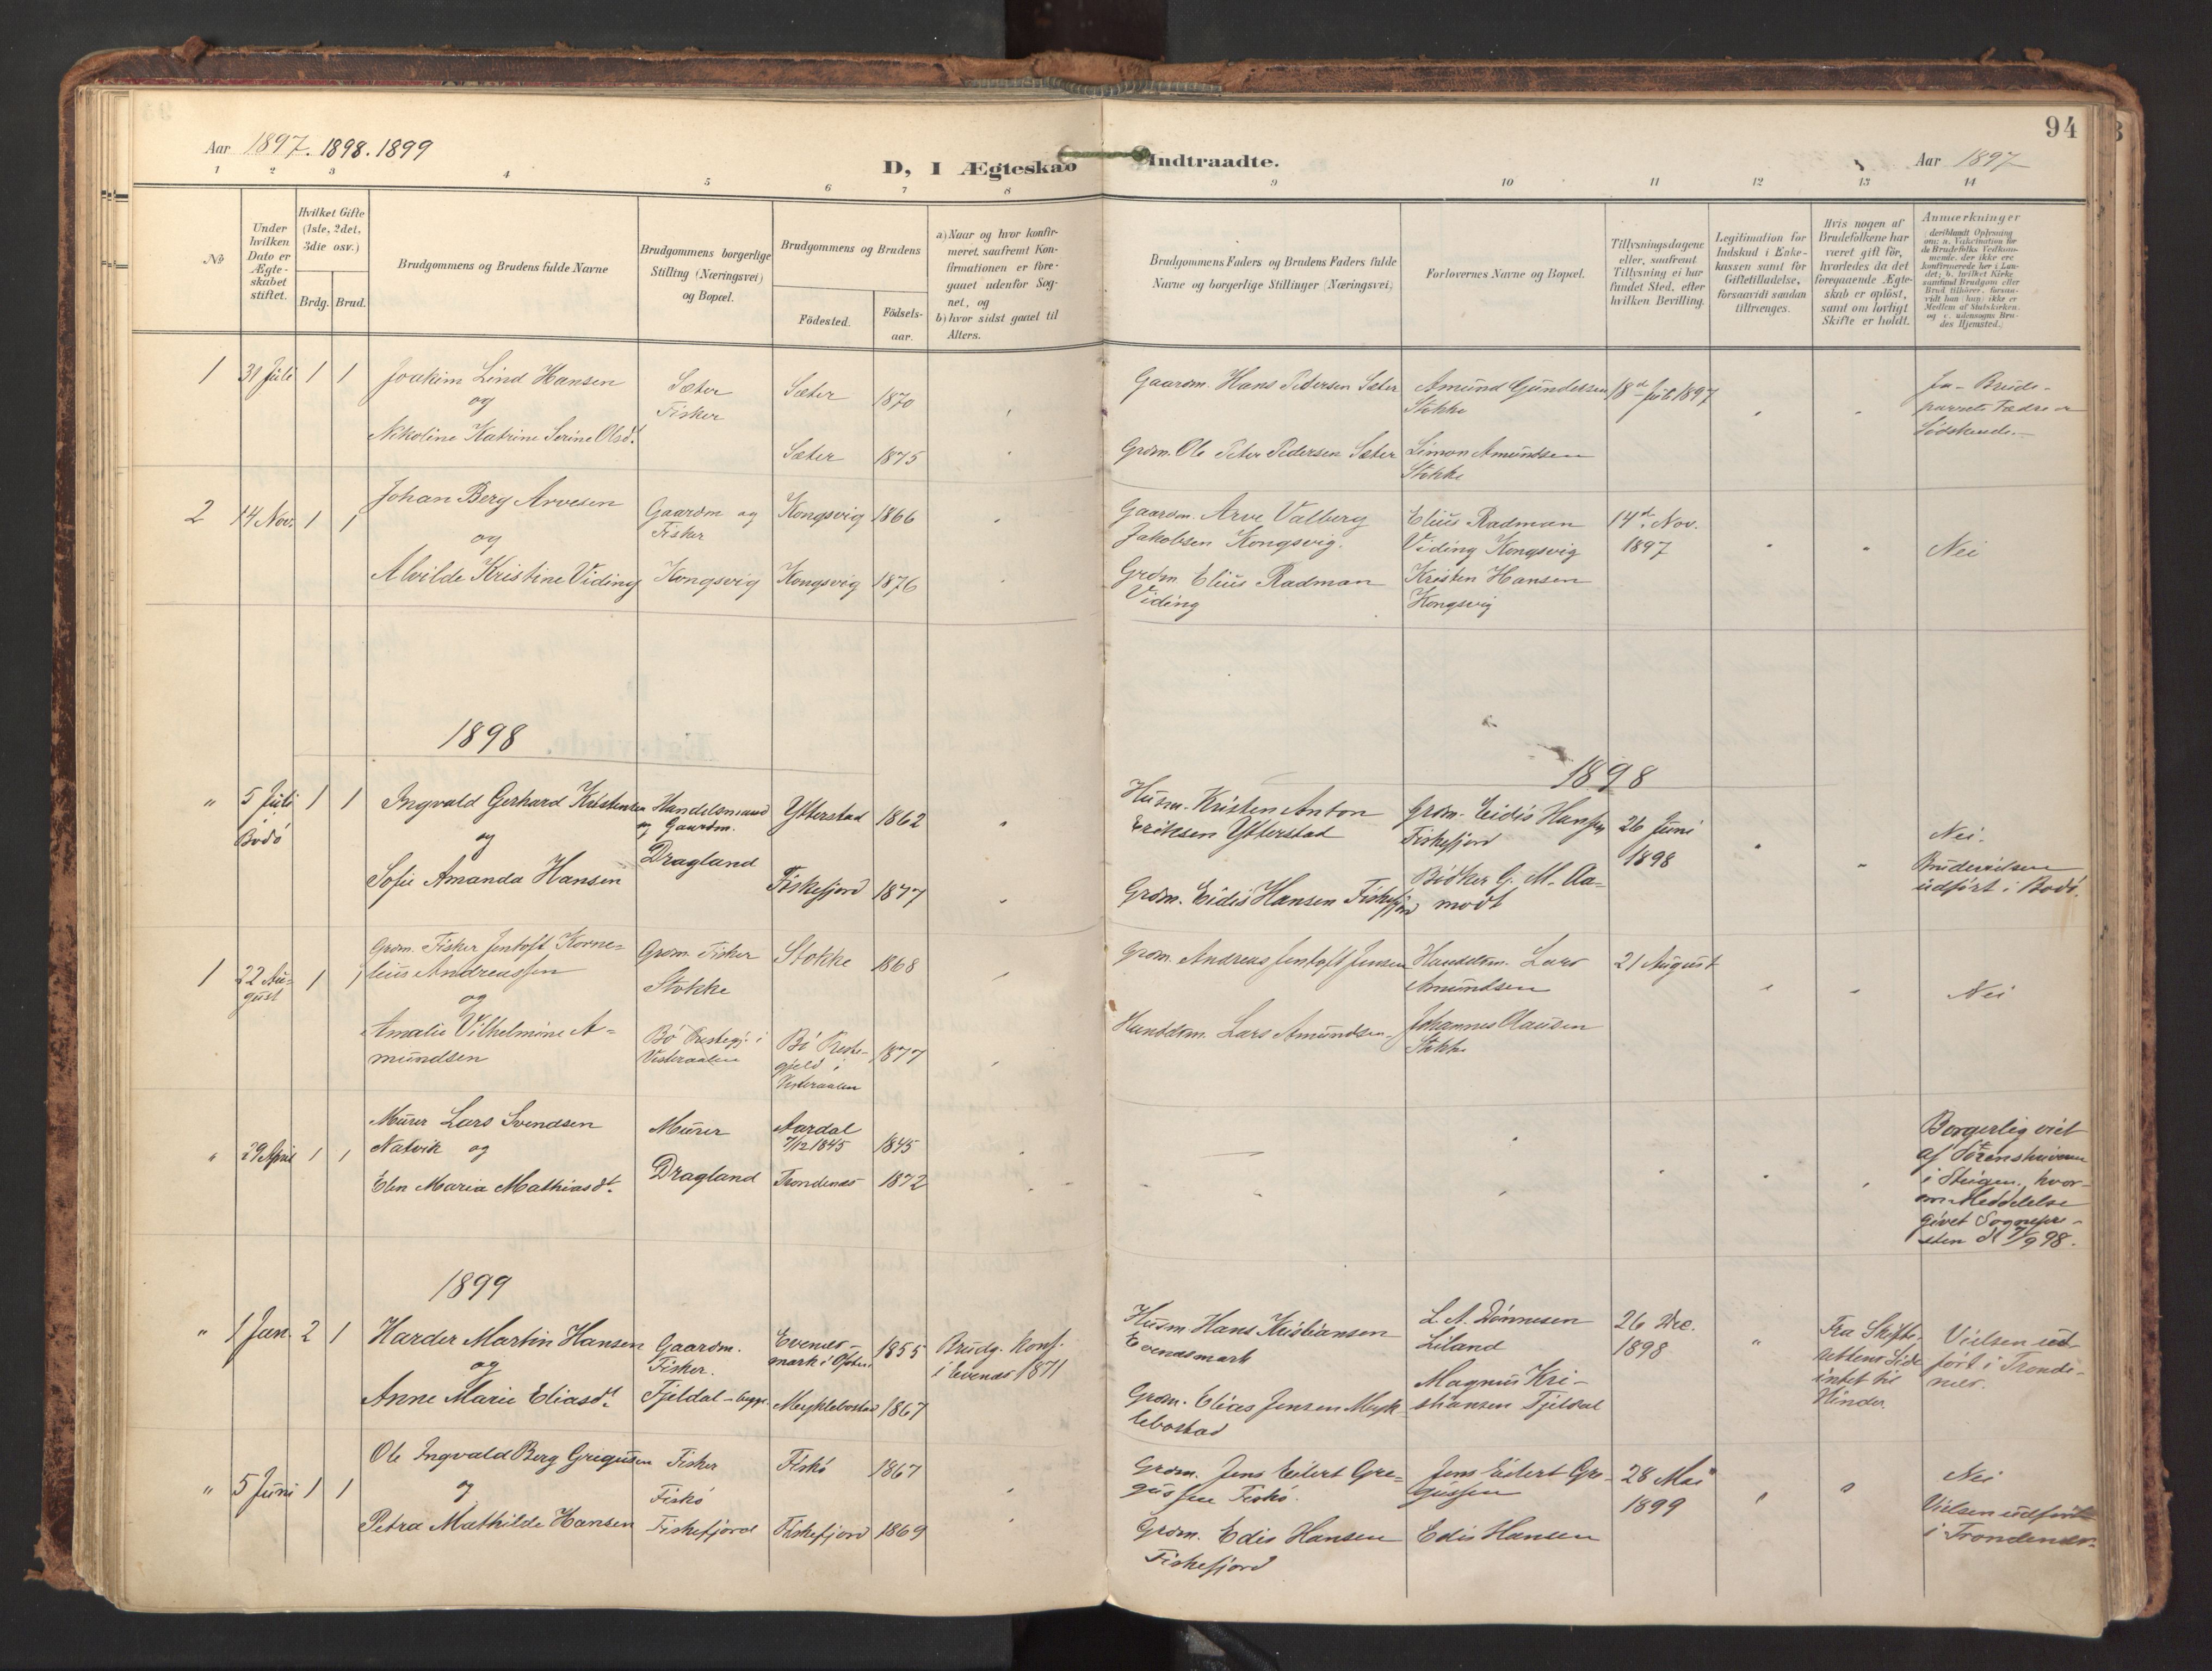 94
Aar 1897. 1898. 1899
D, I Ægteskab Indtraadte.
Aar 1897
1 2 3 4 5 6 7 8 9 10 11 12 13 14
No
Under hvilken Dato er Ægte-skabet stiftet.
Hvilket Gifte (1ste, 2det, 3die osv.)
Brdg. Brud.
Brudgommens og Brudens fulde Navne
Brudgommens borgerlige Stilling (Næringsvei) og Bopæl.
Brudgommens og Brudens
Fødested.
Fødsels-aar.
a) Naar og hvor konfir-meret, saafremt Kon-firmationen er fore-gaaet udenfor Sog-net, og
b) hvor sidst gaaet til Alters.
Brudgommens Faders og Brudens Faders fulde Navne og borgerlige Stillinger (Næringsvei)
Forlovernes Navne og Bopæl.
Tillysningsdagene eller, saafremt Tillysning ei har fundet Sted, efter hvilken Bevilling.
Legitimation for Indskud i Enke-kassen samt for Giftetilladelse, forsaavidt saadan tiltrænges.
Hvis nogen af Brudefolkene har været gift før, hvorledes da det foregaaende Ægte-skab er opløst, samt om lovligt Skifte er holdt.
Anmærkninger
deriblandt Oplysning om: a. Vakcination for de Brudefolks Vedkom-mende, der ikke ere konfirmerede her i Lan-det; b. hvilket Kirke-samfund Brudgom eller Brud tilhører, forsaa-vidt han (hun) ikke er Medlem af Statskirken, og c. udensogns Bru-des Hjemsted.
1 31 Juli 1 1
Joakim Lind Hansen
og
Nikoline Katrine Serine Olsdt.
Sæter
Fisker
Sæter 1870
Sæter 1875
Gaardm. Hans Pedersen Sæter
Grdm. Ole Peter Pedersen Sæter
Amund Gundersen
Stokke
Simon Amundsen
Stokke
18d Juli 1897
Ja - Brude-
parrets Fædre er
Södskende.
2 14 Nov. 1 1
Johan Berg Arvesen
og
Alvilde Kristine Viding
Gaardm og
Fisker
Kongsvig
Kongsvig 1866
Kongsvig 1876
Gaardm. Arve Valberg
Jakobsen Kongsvig.
Grdm Elius Radman
Viding
Elius Radman
Viding Kongsvig
Kristen Hansen
Kongsvig
14d. Nov.
1897
Nei
1898
1898
" 5 Juli 1 1
Bodö
Ingvald Gerhard Kristensen
og
Sofie Amanda Hansen
Handelsmand
og Gaardm.
Dragland
Ytterstad 1862
Fiskefjord 1877
Husm. Kristen Anton
Eriksen Ytterstad
Grdm. Eidis Hansen Fiskefjord
Grdm. Eidis Hansen
Fiskefjord
Bödker G. M. Aa-
modt
26 Juni
1898
Nei.
Brudevielsen
udfört i Bodö.
1 22 Au-
gust 1 1
Grdm. Fisker Jentoft Korne-
lius Andreassen
og
Amalie Vilhelmine A-
mundsen
Grdm. Fisker
Stokke
Bö Prestegj. i
Vesteraalen
Stokke 1868
Bö Preste-
gjeld i
Vesteraalen 1877
Grdm. Andreas Jentoft Jensen
Handelsm. Lars Amundsen
Handelsm. Lars
Amundsen
Johannes Olausen
Stokke
21 August
Nei
" 29 April 1 1
Murer Lars Svendsen
Natvik og
Elen Maria Mathiasdt.
Murer
Dragland
Aardal
7/12 1845 1845
Trondenæs 1872
Borgerlig viet
af Sorenskriveren
i Steigen, hvor-
om Meddelelse
givet Sognepre-
sten d 7/9 98.
1899
" 1 Jan. 2 1
Harder Martin Hansen
og
Anne Marie Eliasdt.
Gaardm.
Fisker.
Fjeldal
Evenes-
mark i Ofoten 1855
Meyklebostad 1867
Brudg. konf.
i Evenæs 1871
Husm Hans Kristiansen
Evenesmark
Grdm. Elias Jensen Meyk-
lebostad
L. A. Dönnesen
Liland
Magnus Kri-
stiansen Fjeldal
26 Dec.
1898
Fra Skifte-
rettens Side
intet til
Hinder.
Vielsen ud-
fört i Tronde-
næs.
" 5 Juni 1 1
Ole Ingvald Berg Grigusen
og
Petra Mathilde Hansen
Fisker
Fiskö
Fiskefjord
Fiskö 1867
Fiskefjord 1869
Grdm. Jens Eilert Gre-
gussen Fiskö.
Grdm. Edis Hansen
Fiskefjord
Jens Eilert Gre-
gussen
Edis Hansen
28 Mai
1899
Nei
Vielsen udfört
i Trondenæs.